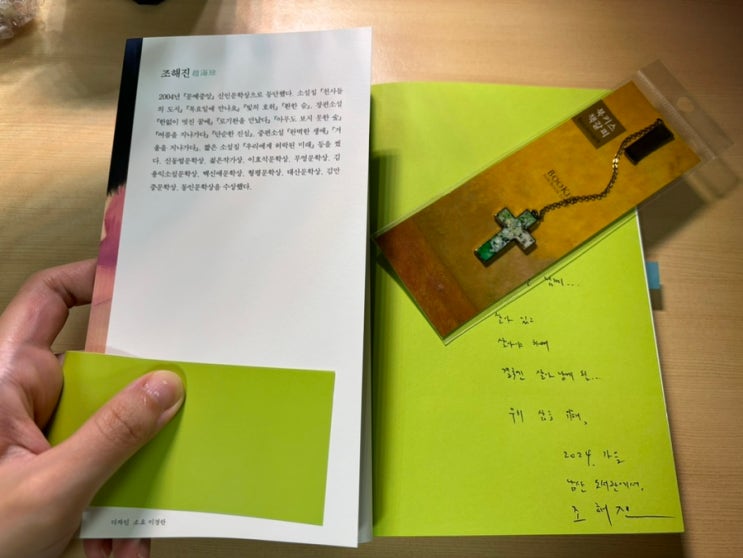 조해진 趙海珍
2004년 『문예중앙』 신인문학상으로 등단했다. 소설집 『천사들
의 도시』 『목요일에 만나요』 『빛의 호위』 『환한 숨』, 장편소설
『한없이 멋진 꿈에』 『로기완을 만났다』 『아무도 보지 못한 숲』
『여름을 지나가다』 『단순한 진심』, 중편소설 『완벽한 생애』 『겨
울을 지나가다』, 짧은 소설집 『우리에게 허락된 미래』 등을 썼
다. 신동엽문학상, 젊은작가상, 이효석문학상, 무영문학상, 김
용익소설문학상, 백신애문학상, 형평문학상, 대산문학상, 김만
중문학상, 동인문학상을 수상했다.
디자인 소요 이경란
북키스
책갈피
BOOK
살아 있고
살아야 하며
우리 삶을 위해,
2024. 가을
남산 도서관에서,
조해진